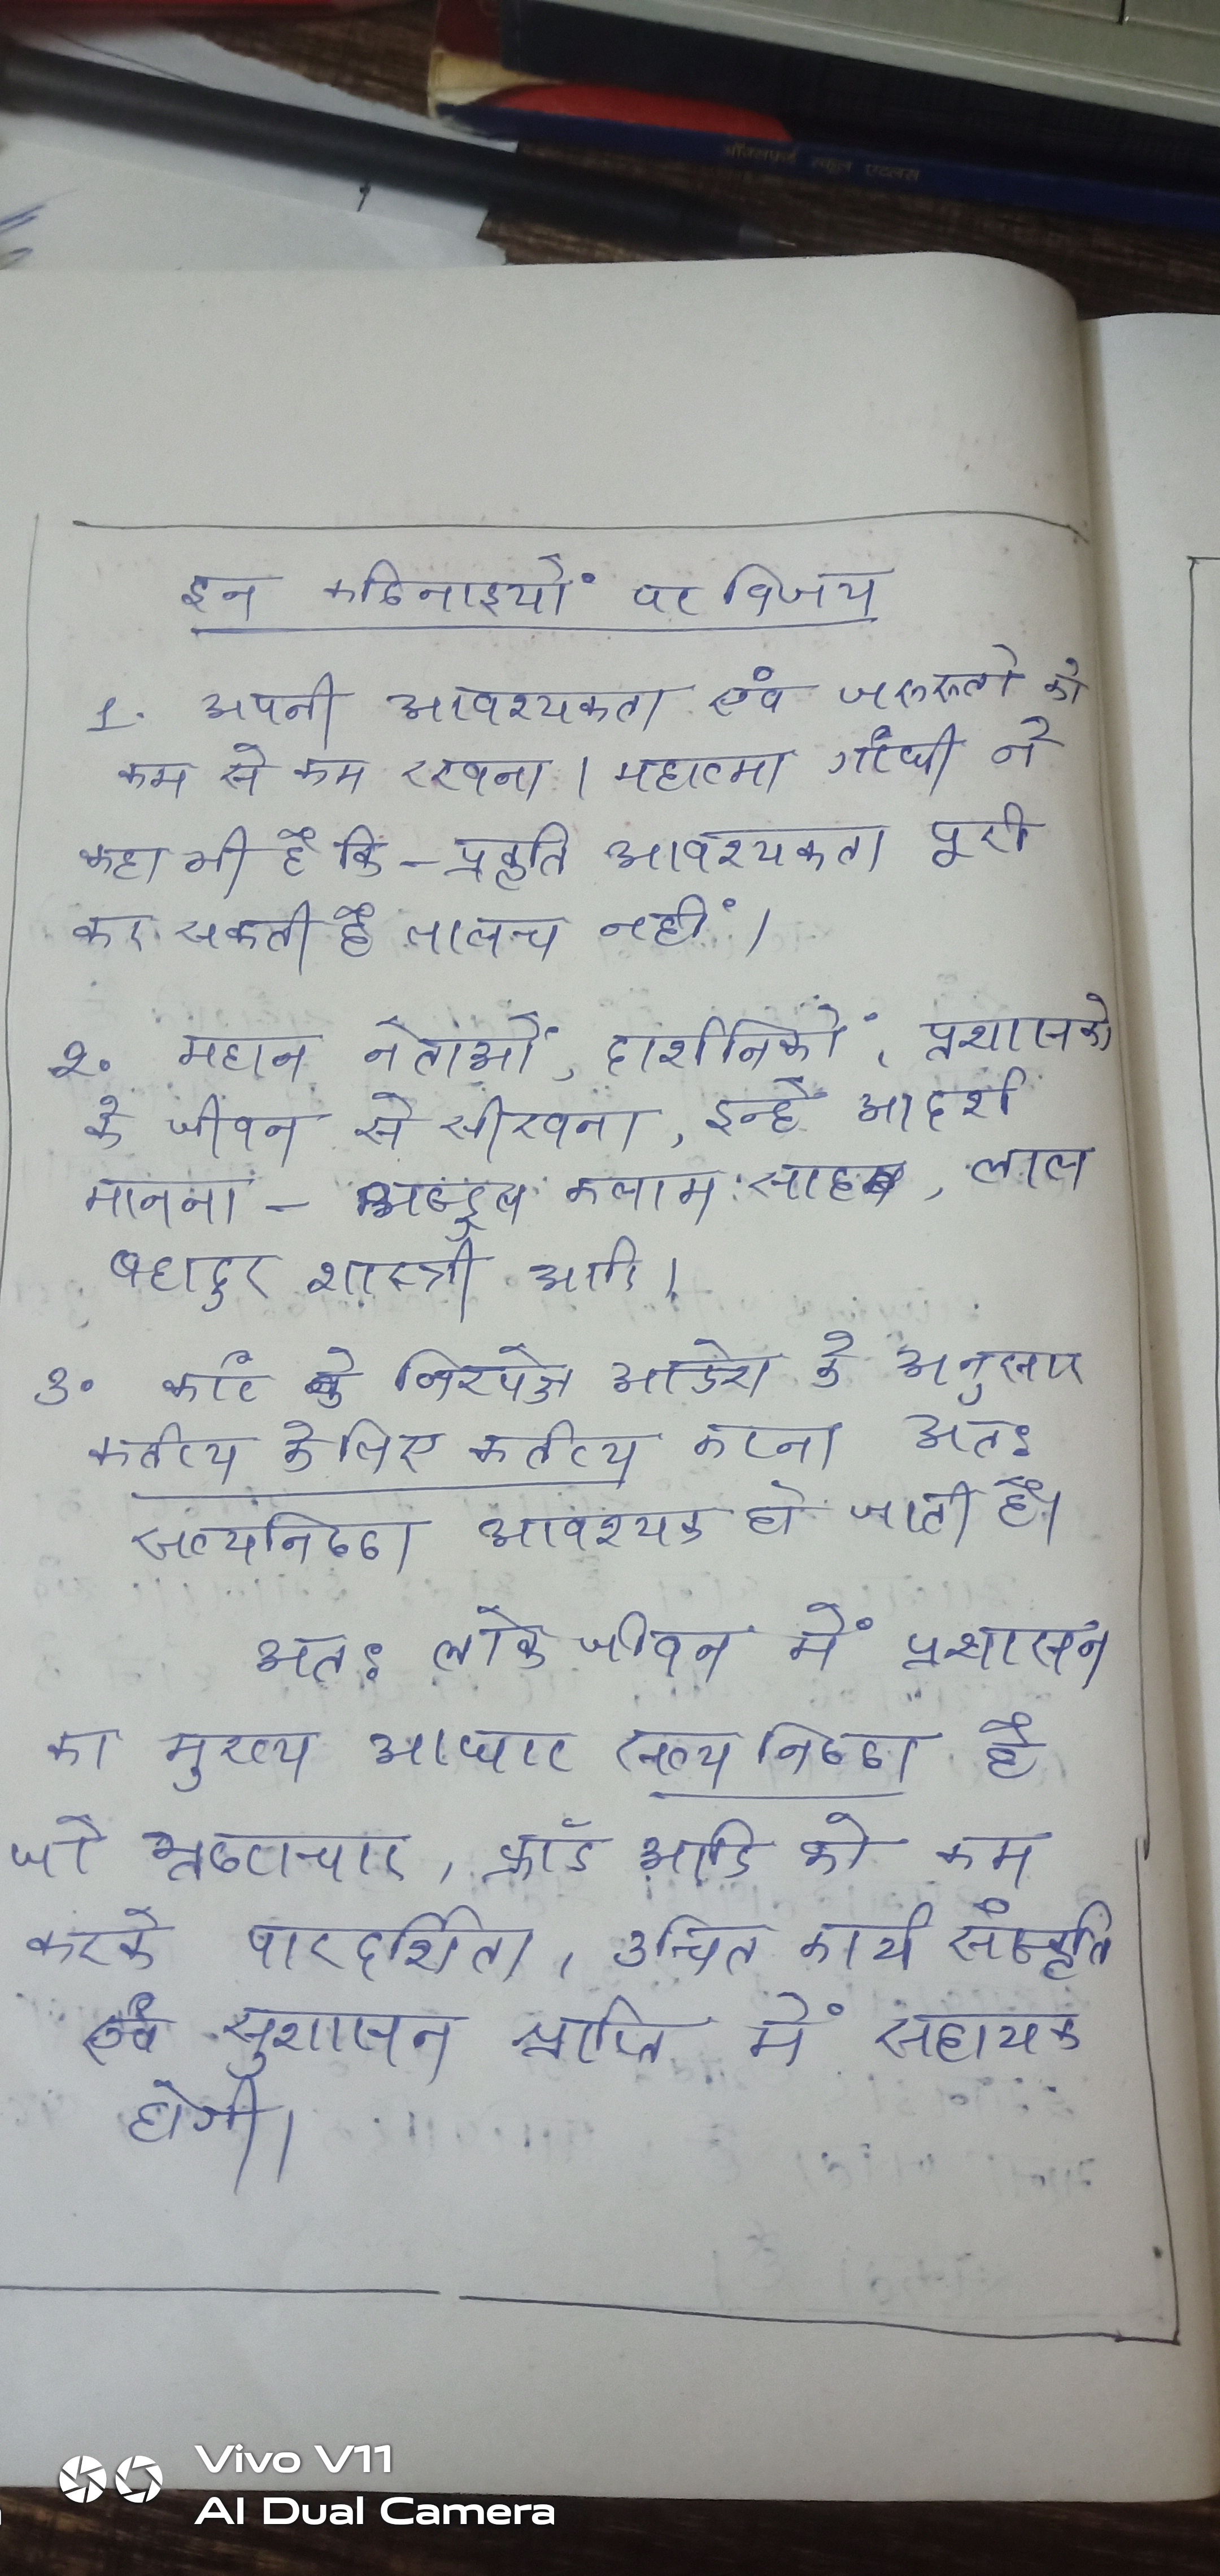 ऑक्सफ़र्ड स्कूल एटलस
इन कठिनाइयों पर विजय
1. अपनी आवश्यकता एवं जरूरतो को
कम से कम रखना। महात्मा गाँधी ने
कहा भी है कि - प्रकृति आवश्यकता पूरी
कर सकती है लालच नहीं।
2. महान नेताओं, दार्शनिकों, प्रशासको
के जीवन से सीखना, इन्हें आदर्श
मानना - अब्दुल कलाम साहब, लाल
बहादुर शास्त्री आदि।
3. कांट के निरपेक्ष आदेश के अनुसार
कर्तव्य के लिए कर्तव्य करना अतः
सत्यनिष्ठा आवश्यक हो जाती है।
अतः लोक जीवन में प्रशासन
का मुख्य आधार सत्यनिष्ठा है
जो भ्रष्टाचार, फ्रॉड आदि को कम
करके पारदर्शिता, उचित कार्य संस्कृति
एवं सुशासन प्राप्ति में सहायक
होगी।
Vivo V11
AI Dual Camera